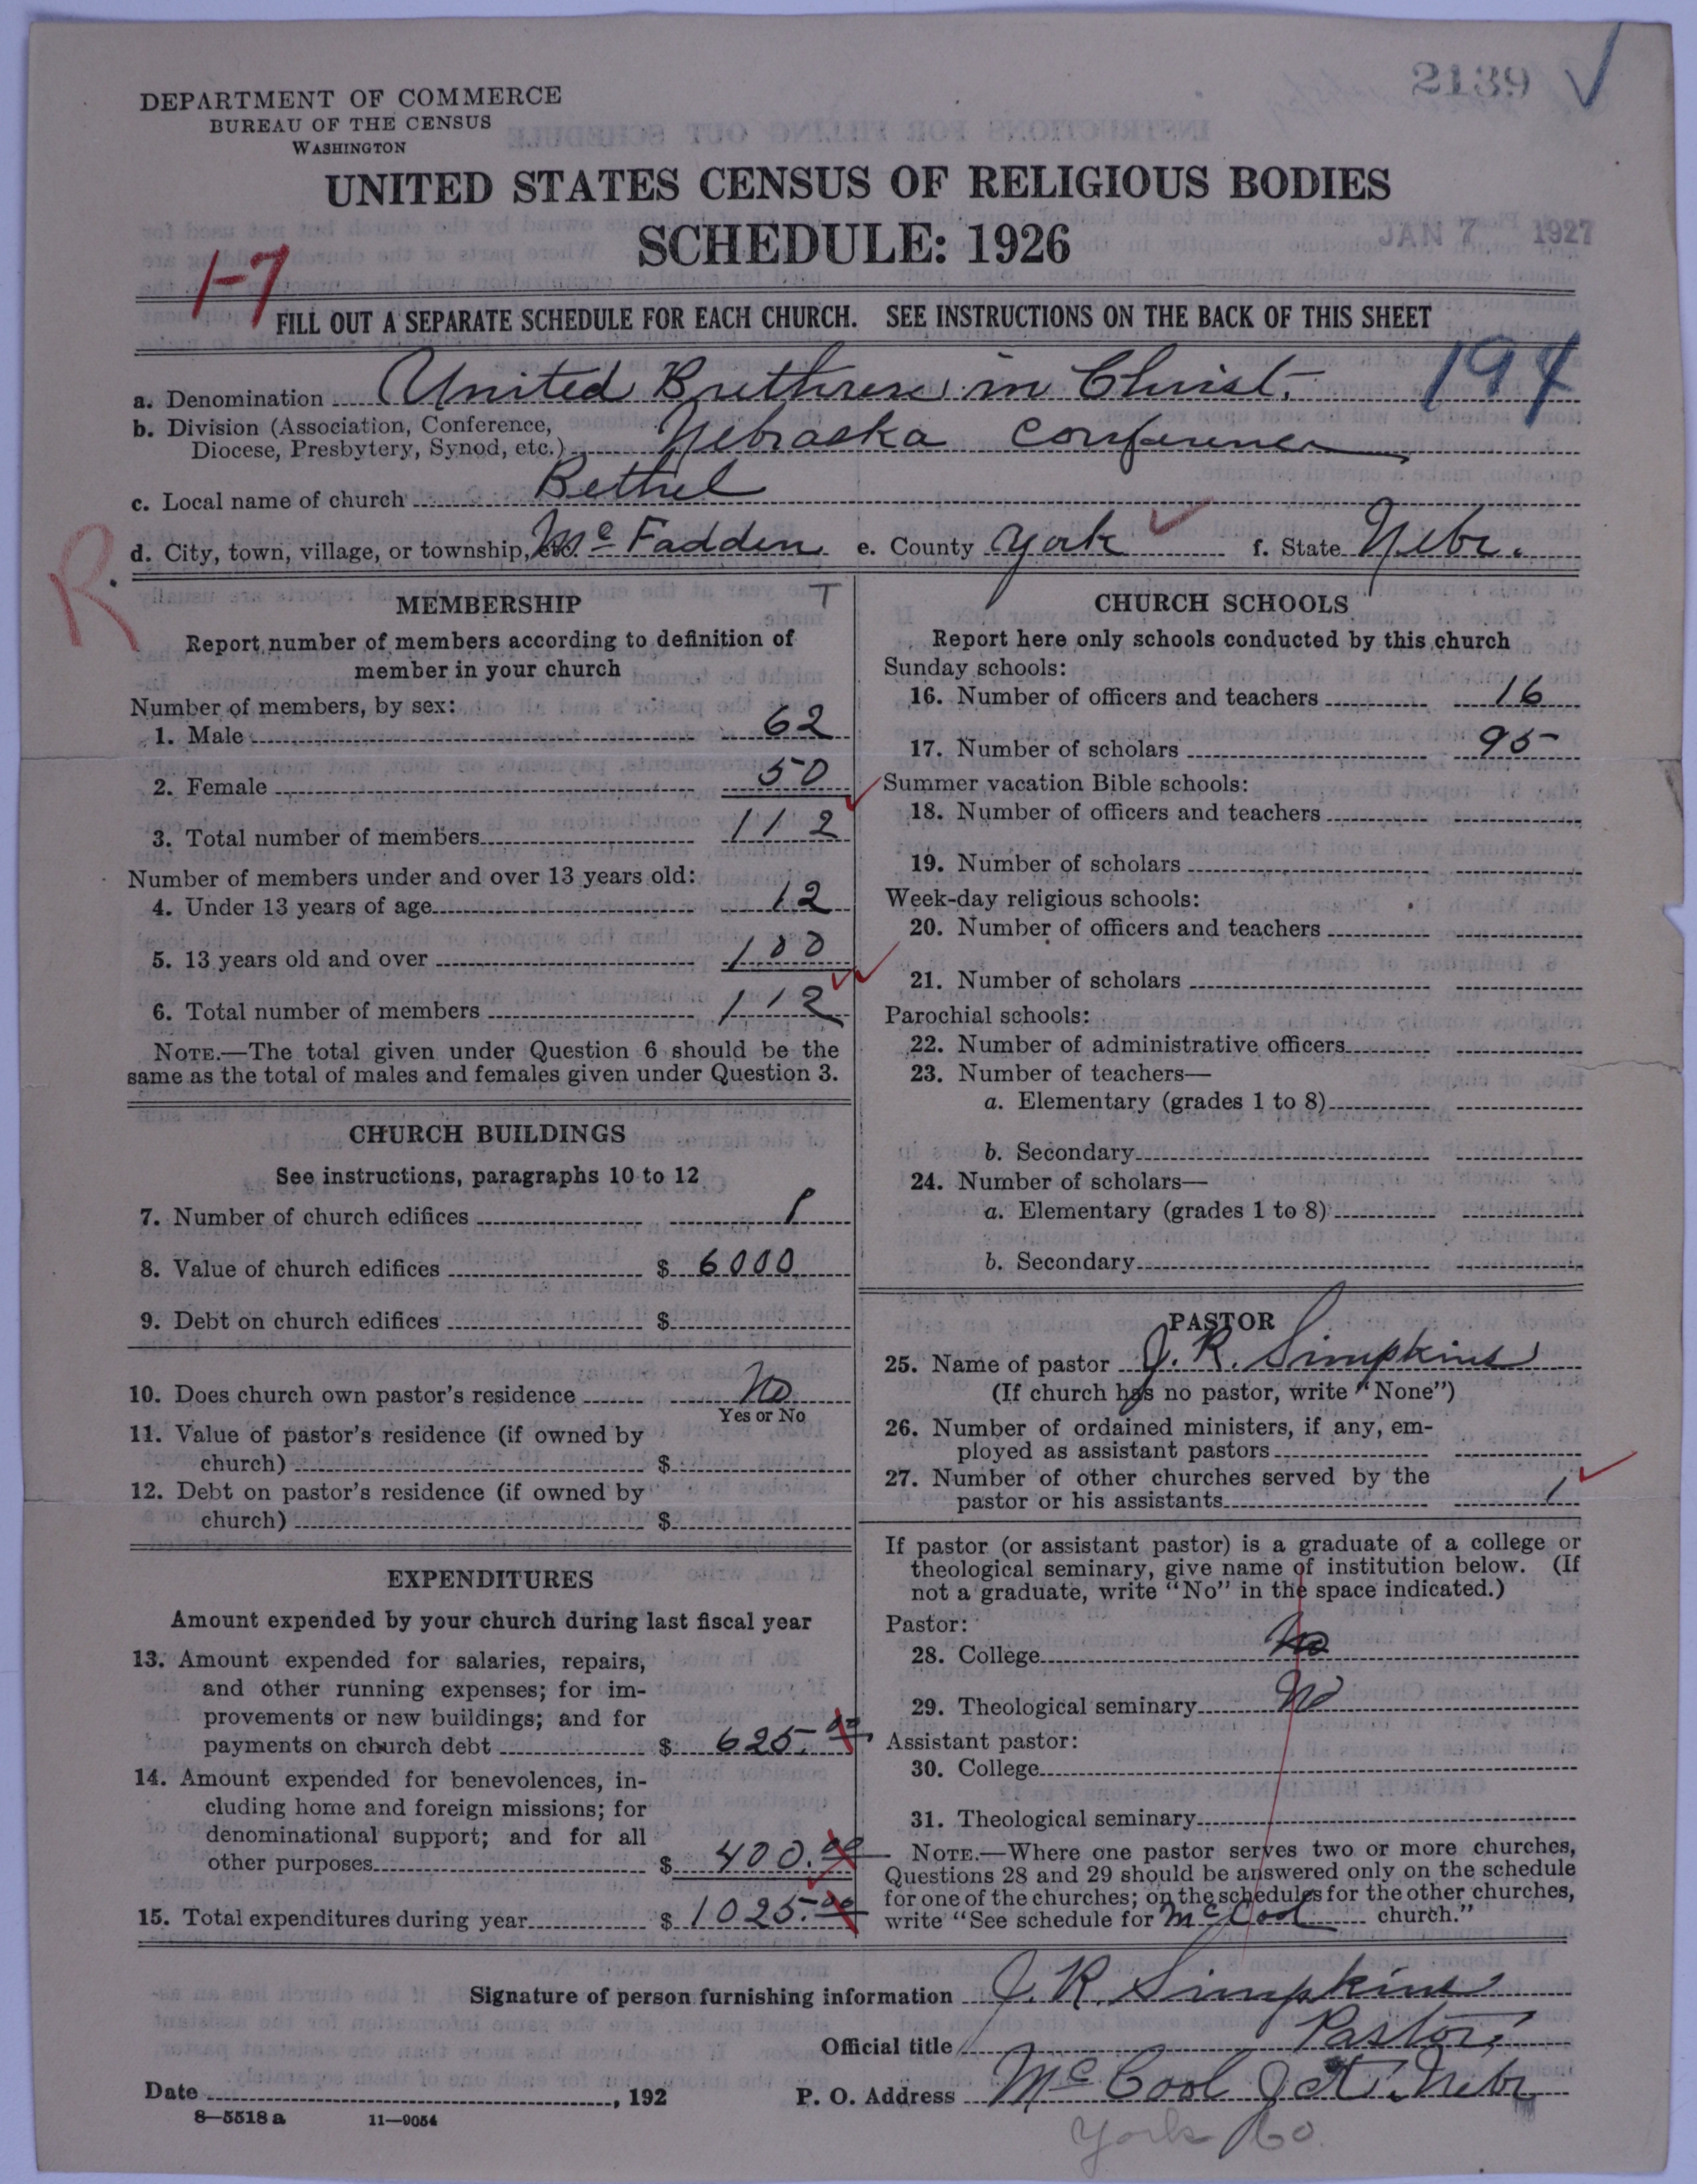 2139 ✓
DEPARTMENT OF COMMERCE
BUREAU OF THE CENSUS
WASHINGTON
UNITED STATES CENSUS OF RELIGIOUS BODIES
SCHEDULE: 1926
JAN 7 1927
1-7
FILL OUT A SEPARATE SCHEDULE FOR EACH CHURCH. SEE INSTRUCTIONS ON THE BACK OF THIS SHEET
194
a. Denomination United Brethren in Christ.
b. Division (Association, Conference,
Diocese, Presbytery, Synod, etc.) Nebraska Conference
c. Local name of church Bethel
d. City, town, village, or township, etc. McFadden e. County York f. State Nebr.
R
MEMBERSHIP T
Report number of members according to definition of
member in your church
Number of members, by sex:
1. Male 62
2. Female 50
3. Total number of members 112
Number of members under and over 13 years old:
4. Under 13 years of age 12
5. 13 years old and over 100
6. Total number of members 112
NOTE.—The total given under Question 6 should be the
same as the total of males and females given under Question 3.
CHURCH BUILDINGS
See instructions, paragraphs 10 to 12
7. Number of church edifices 1
8. Value of church edifices $ 6000
9. Debt on church edifices $
10. Does church own pastor's residence No
Yes or No
11. Value of pastor's residence (if owned by
church) $
12. Debt on pastor's residence (if owned by
church) $
EXPENDITURES
Amount expended by your church during last fiscal year
13. Amount expended for salaries, repairs,
and other running expenses; for im-
provements or new buildings; and for
payments on church debt $ 625.00
14. Amount expended for benevolences, in-
cluding home and foreign missions; for
denominational support; and for all
other purposes $ 400.00
15. Total expenditures during year $ 1025.00
CHURCH SCHOOLS
Report here only schools conducted by this church
Sunday schools:
16. Number of officers and teachers 16
17. Number of scholars 95
Summer vacation Bible schools:
18. Number of officers and teachers
19. Number of scholars
Week-day religious schools:
20. Number of officers and teachers
21. Number of scholars
Parochial schools:
22. Number of administrative officers
23. Number of teachers—
a. Elementary (grades 1 to 8)
b. Secondary
24. Number of scholars—
a. Elementary (grades 1 to 8)
b. Secondary
PASTOR
25. Name of pastor J. R. Simpkins
(If church has no pastor, write "None")
26. Number of ordained ministers, if any, em-
ployed as assistant pastors
27. Number of other churches served by the
pastor or his assistants 1
If pastor (or assistant pastor) is a graduate of a college or
theological seminary, give name of institution below. (If
not a graduate, write "No" in the space indicated.)
Pastor:
28. College No
29. Theological seminary No
Assistant pastor:
30. College
31. Theological seminary
NOTE.—Where one pastor serves two or more churches,
Questions 28 and 29 should be answered only on the schedule
for one of the churches; on the schedules for the other churches,
write "See schedule for McCool church."
Signature of person furnishing information J. R. Simpkins
Official title Pastor.
Date , 192 P. O. Address McCool Jct. Nebr
8—5518 a 11—9054
York Co.